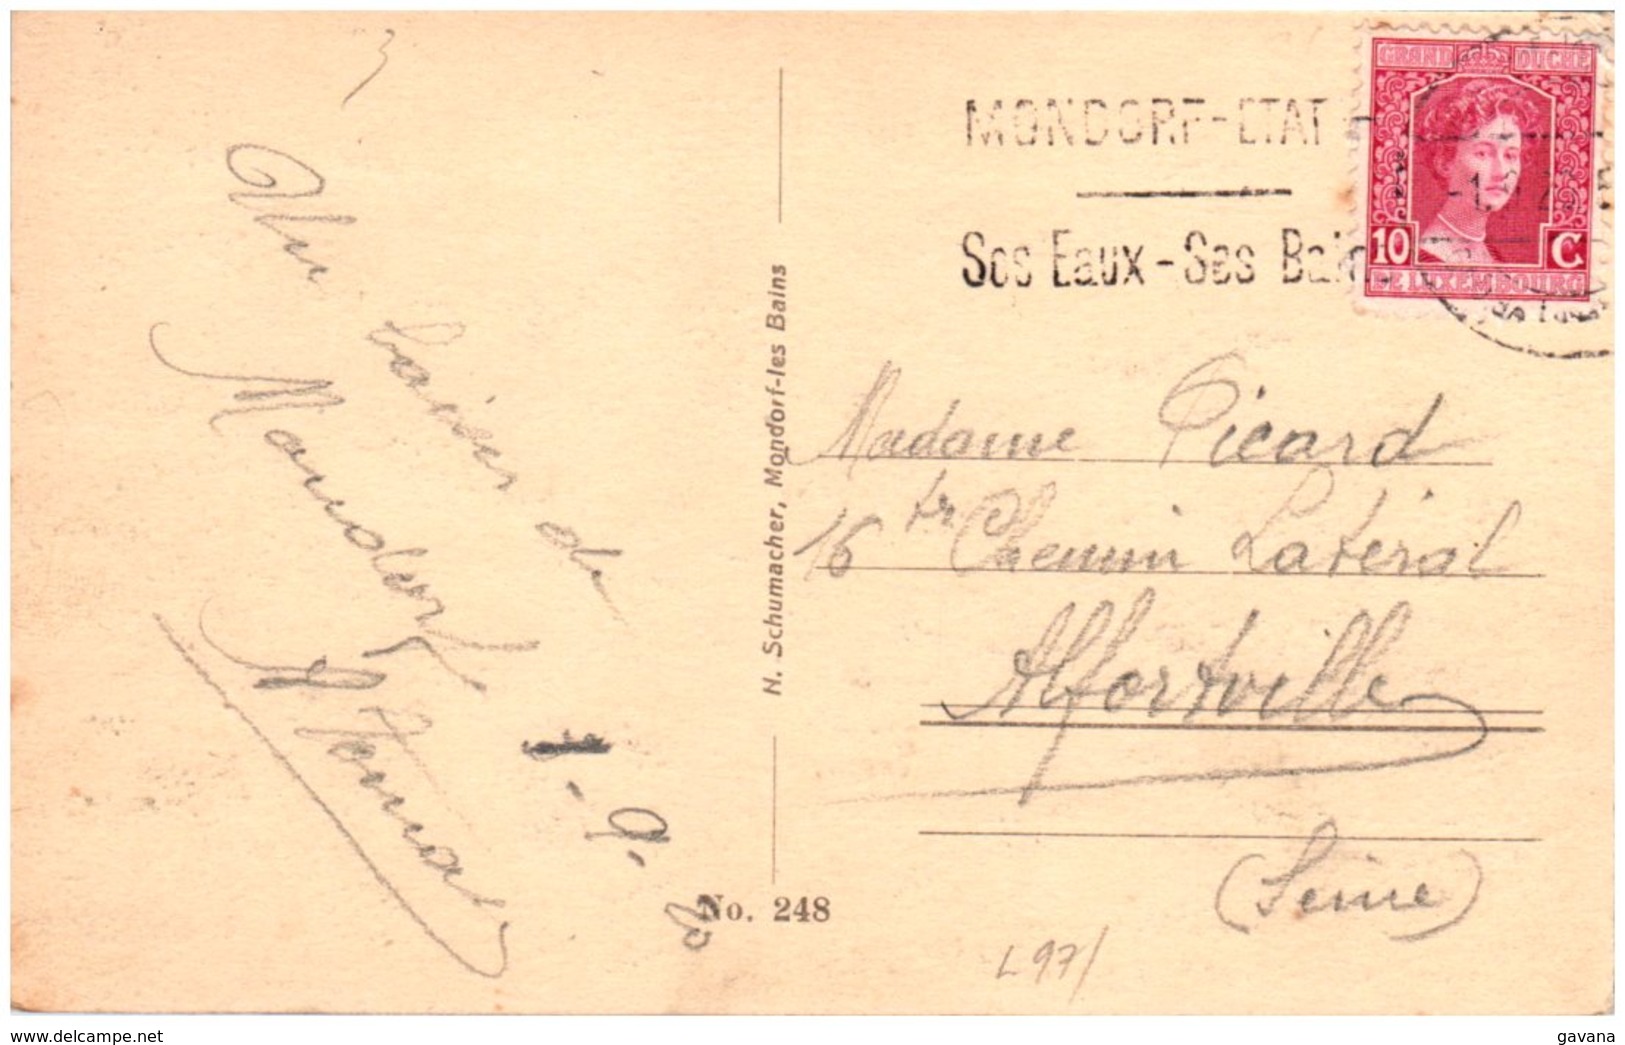 Un baiser de
Mondorf
1-9-
MONDORF-ETAT
Ses Eaux-Ses Bains
GRAND DUCHÉ
10 C.
DE LUXEMBOURG
N. Schumacher, Mondorf-les Bains
Madame Picard
16 ter Chemin Latéral
Alfortville
(Seine)
No. 248
L 97/
delcampe.net
gavana